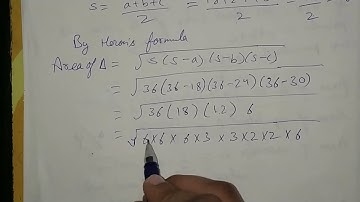 S = a+b+c / 2 =
By Heron's formula
Area of Δ = √S (S-a) (S-b)(S-c)
= √36(36-18)(36-24)(36-30)
= √36(18)(12) 6
= √6×6× 6×3 × 3×2×2×6